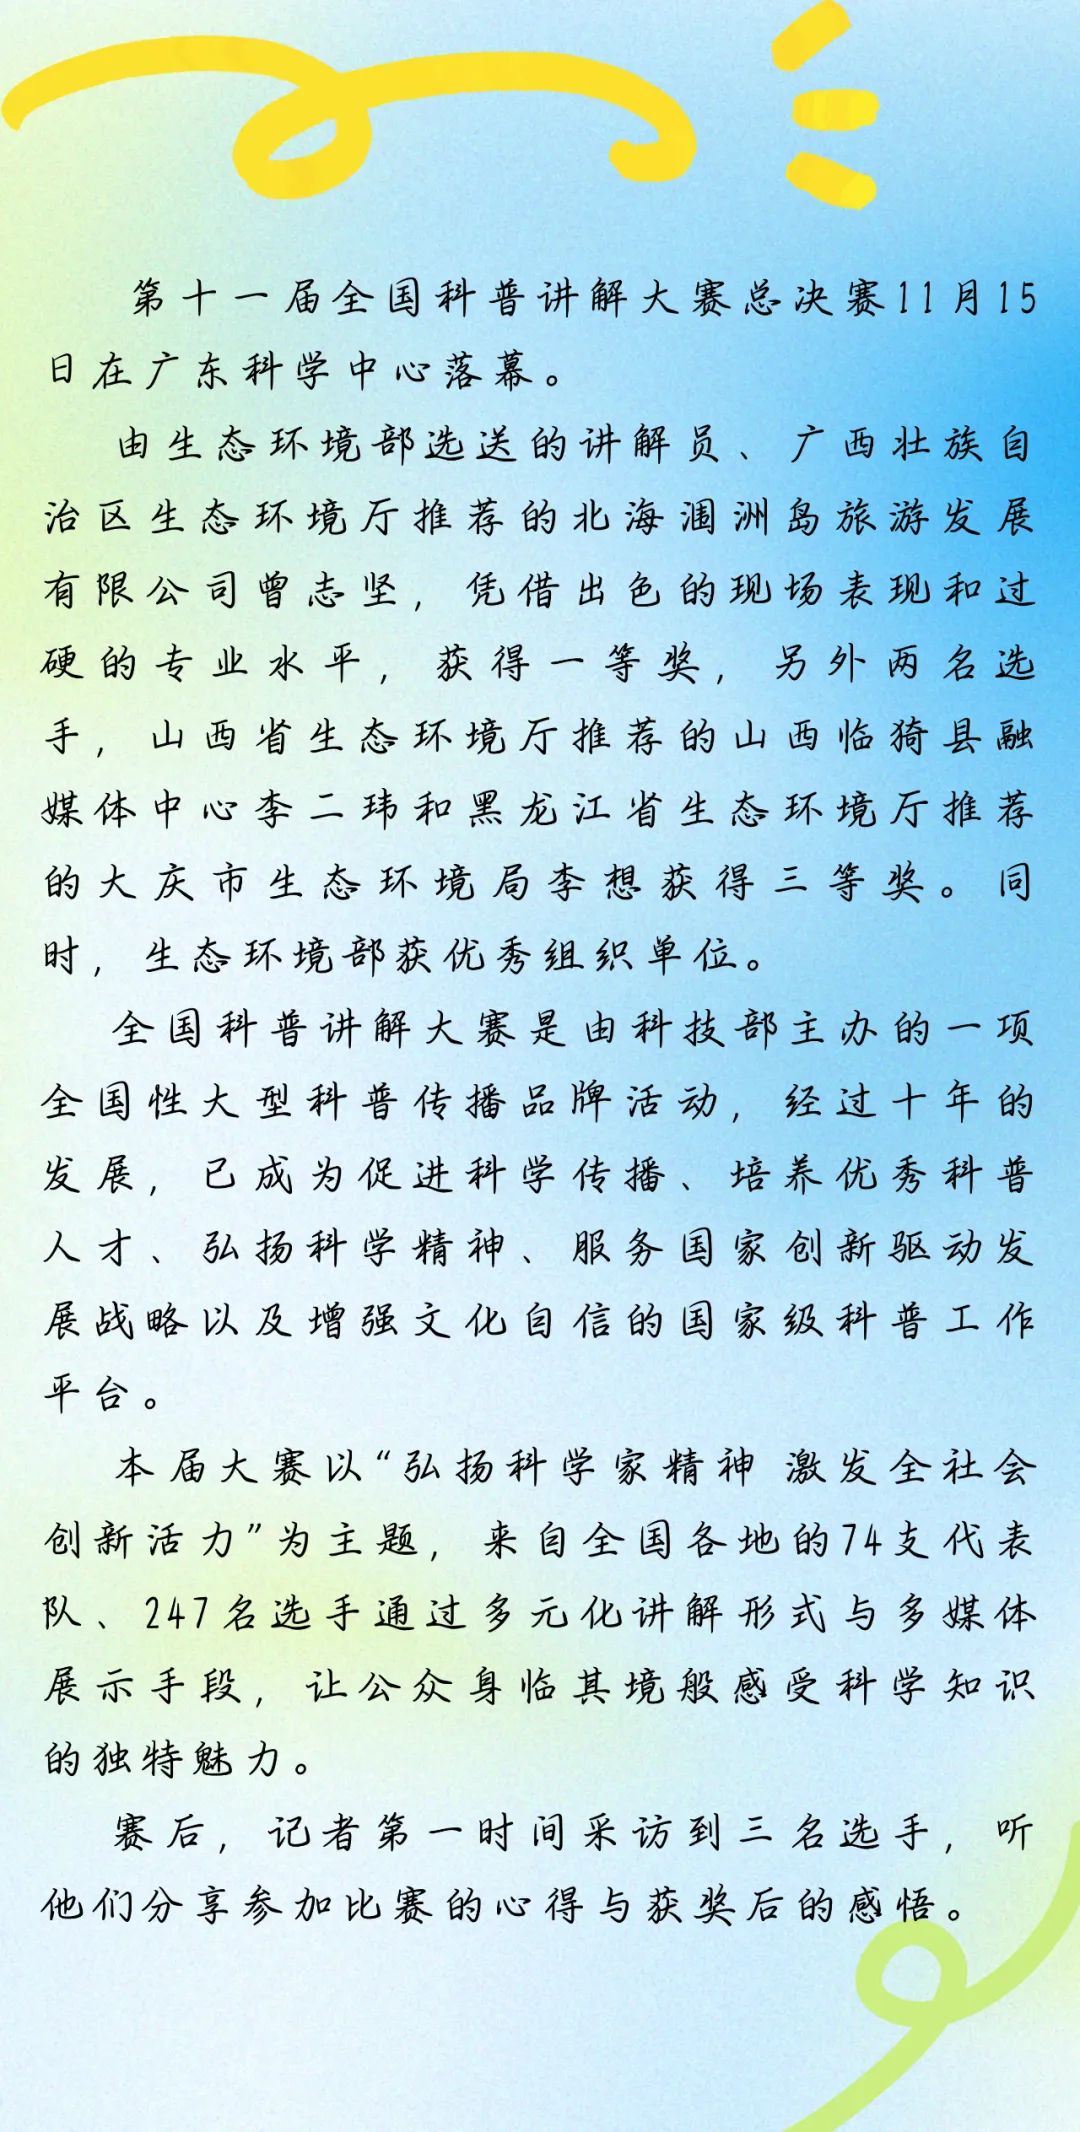 第十一届全国科普讲解大赛总决赛11月15
日在广东科学中心落幕。
由生态环境部选送的讲解员、广西壮族自
治区生态环境厅推荐的北海涠洲岛旅游发展
有限公司曾志坚，凭借出色的现场表现和过
硬的专业水平，获得一等奖，另外两名选
手，山西省生态环境厅推荐的山西临猗县融
媒体中心李二玮和黑龙江省生态环境厅推荐
的大庆市生态环境局李想获得三等奖。同
时，生态环境部获优秀组织单位。
全国科普讲解大赛是由科技部主办的一项
全国性大型科普传播品牌活动，经过十年的
发展，已成为促进科学传播、培养优秀科普
人才、弘扬科学精神、服务国家创新驱动发
展战略以及增强文化自信的国家级科普工作
平台。
本届大赛以“弘扬科学家精神 激发全社会
创新活力”为主题，来自全国各地的74支代表
队、247名选手通过多元化讲解形式与多媒体
展示手段，让公众身临其境般感受科学知识
的独特魅力。
赛后，记者第一时间采访到三名选手，听
他们分享参加比赛的心得与获奖后的感悟。